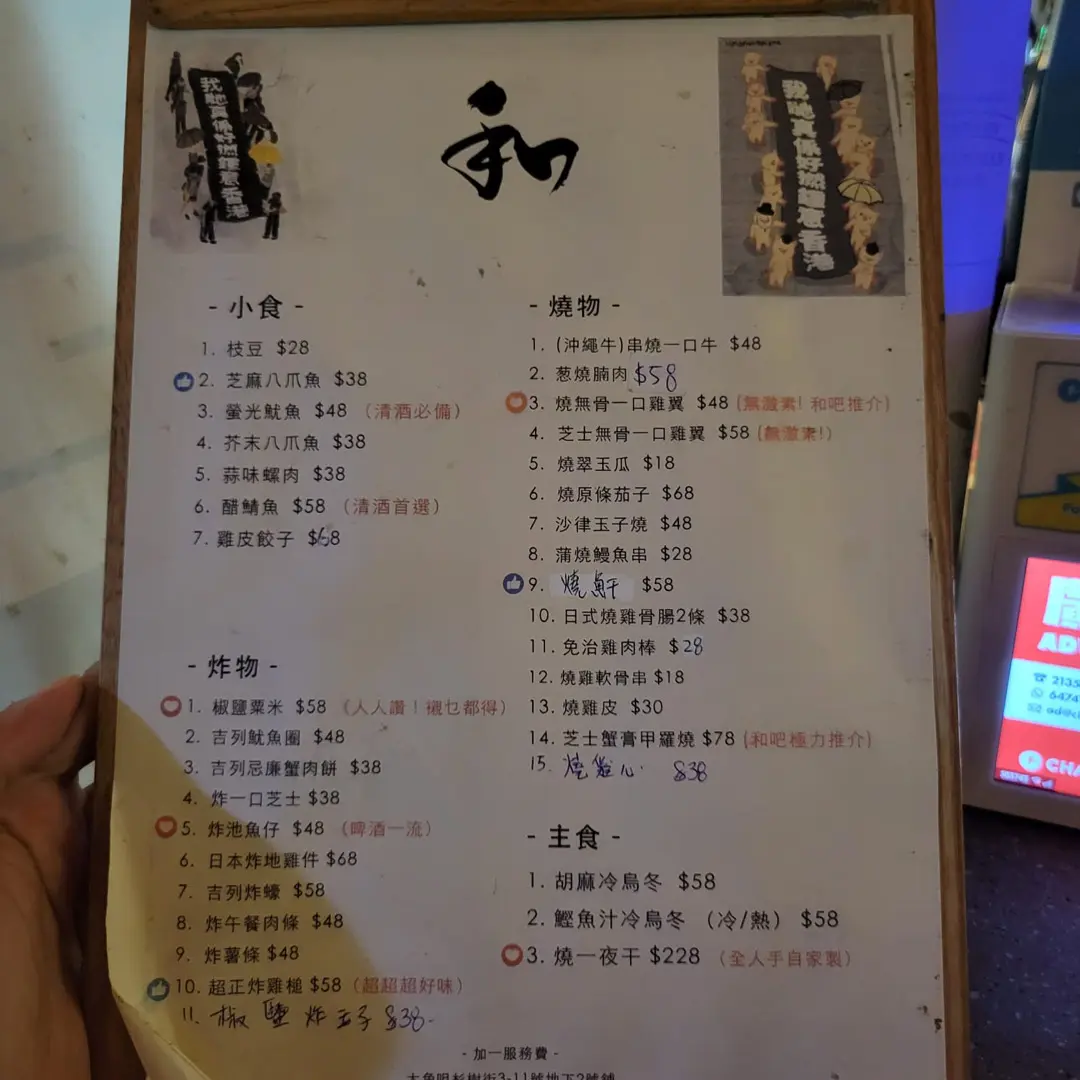 我哋真係好撚鍾意香港
和
我哋真係好撚鍾意香港
- 小食 -
1. 枝豆 $28
2. 芝麻八爪魚 $38
3. 螢光魷魚 $48 （清酒必備）
4. 芥末八爪魚 $38
5. 蒜味螺肉 $38
6. 醋鯖魚 $58 （清酒首選）
7. 雞皮餃子 $68
- 炸物 -
1. 椒鹽粟米 $58 《人人讚！襯乜都得》
2. 吉列魷魚圈 $48
3. 吉列忌廉蟹肉餅 $38
4. 炸一口芝士 $38
5. 炸池魚仔 $48 （啤酒一流）
6. 日本炸地雞件 $68
7. 吉列炸蠔 $58
8. 炸午餐肉條 $48
9. 炸薯條 $48
10. 超正炸雞槌 $58（超超超好味）
11. 椒鹽炸玉子 $38-
- 燒物 -
1. (沖繩牛)串燒一口牛 $48
2. 葱燒腩肉 $58
3. 燒無骨一口雞翼 $48 (無激素! 和吧推介)
4. 芝士無骨一口雞翼 $58 (無激素!)
5. 燒翠玉瓜 $18
6. 燒原條茄子 $68
7. 沙律玉子燒 $48
8. 蒲燒鰻魚串 $28
9. 燒 $58
10. 日式燒雞骨腸2條 $38
11. 免治雞肉棒 $28
12. 燒雞軟骨串 $18
13. 燒雞皮 $30
14. 芝士蟹膏甲羅燒 $78 (和吧極力推介)
15. 燒雞心 $38
- 主食 -
1. 胡麻冷烏冬 $58
2. 鰹魚汁冷烏冬 （冷/熱） $58
3. 燒一夜干 $228 （全人手自家製）
- 加一服務費 -
大角咀杉樹街3-11號地下2號舖
AD
2135
6474
ad@c
CHA